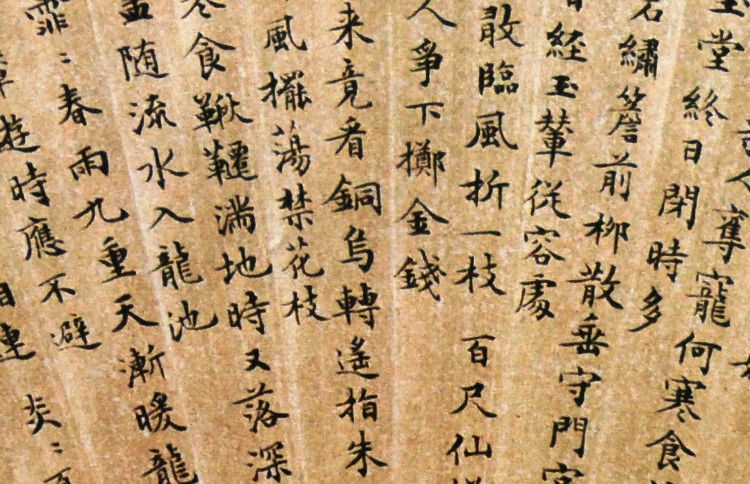 人奪寵何寒食
堂終日閉時多
繡簷前柳散垂守門宮
經玉輦從容處
敢臨風折一枝 百尺仙
人爭下擲金錢
来竟看銅烏轉遙指朱
風擺蕩禁花枝
食鞦韆満地時又落深
盃随流水入龍池
霏〻春雨九重天漸暖龍
遊時應不避